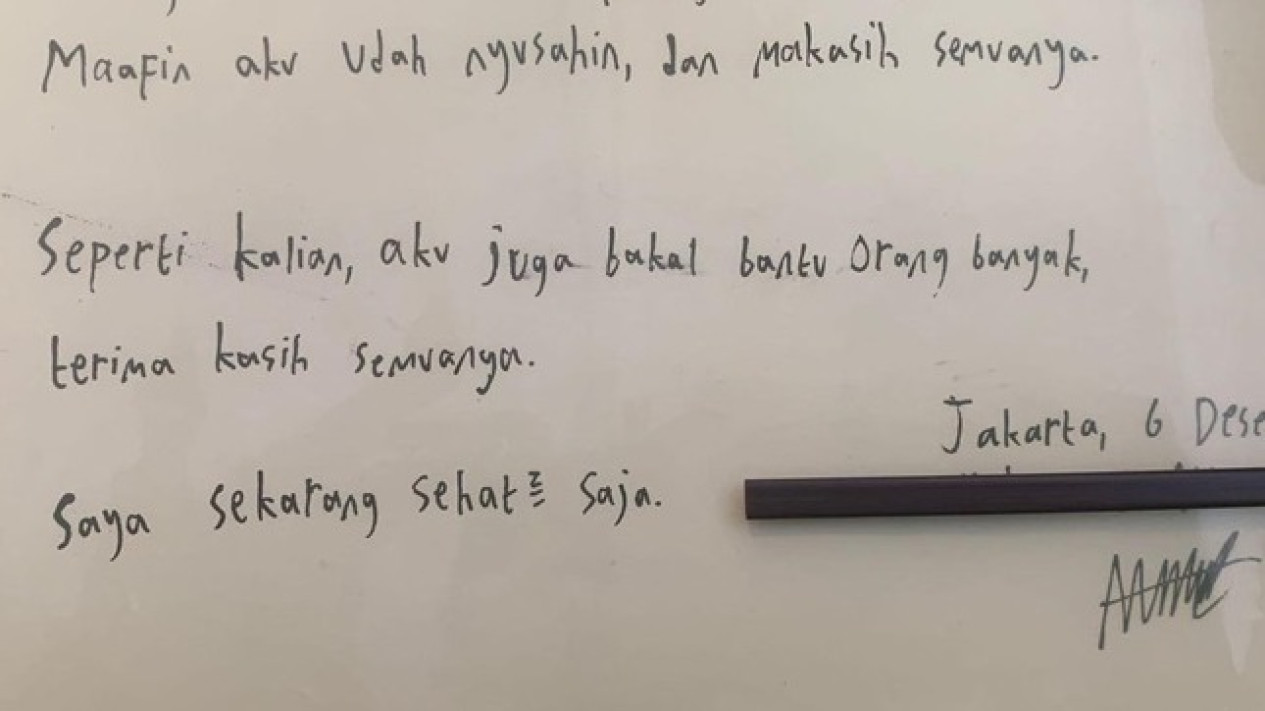 Maafin aku udah nyusahin, dan makasih semuanya.
Seperti kalian, aku juga bakal bantu orang banyak,
terima kasih semuanya.
Jakarta, 6 Dese
Saya sekarang sehat² saja.